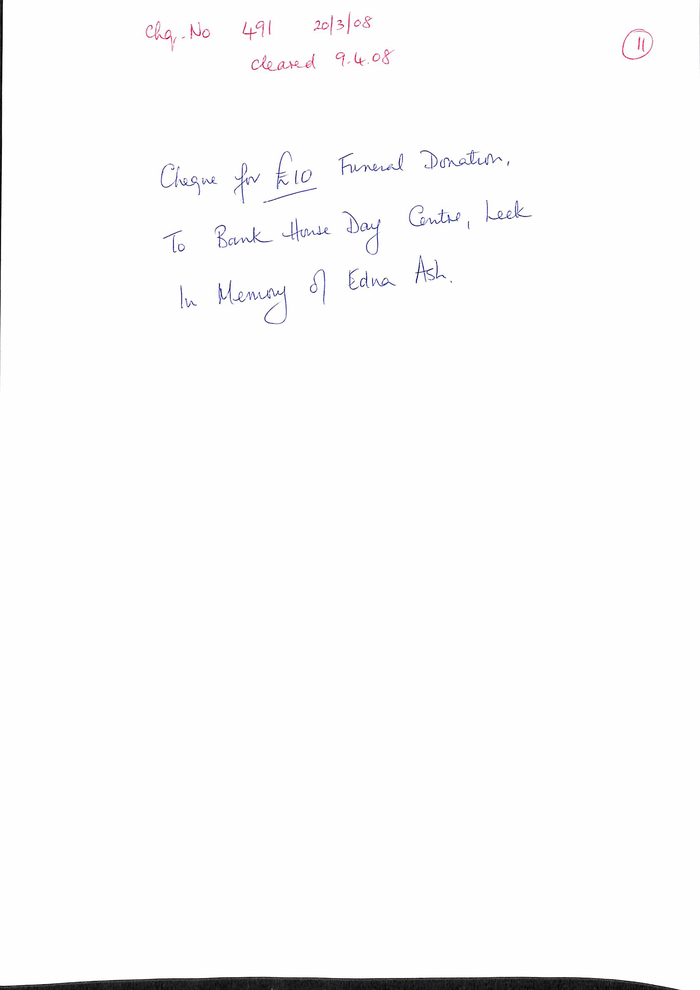 Chq. No 491 20/3/08
cleared 9.4.08
11
Cheque for £10 Funeral Donation.
To Bank House Day Centre, Leek
In Memory of Edna Ash.